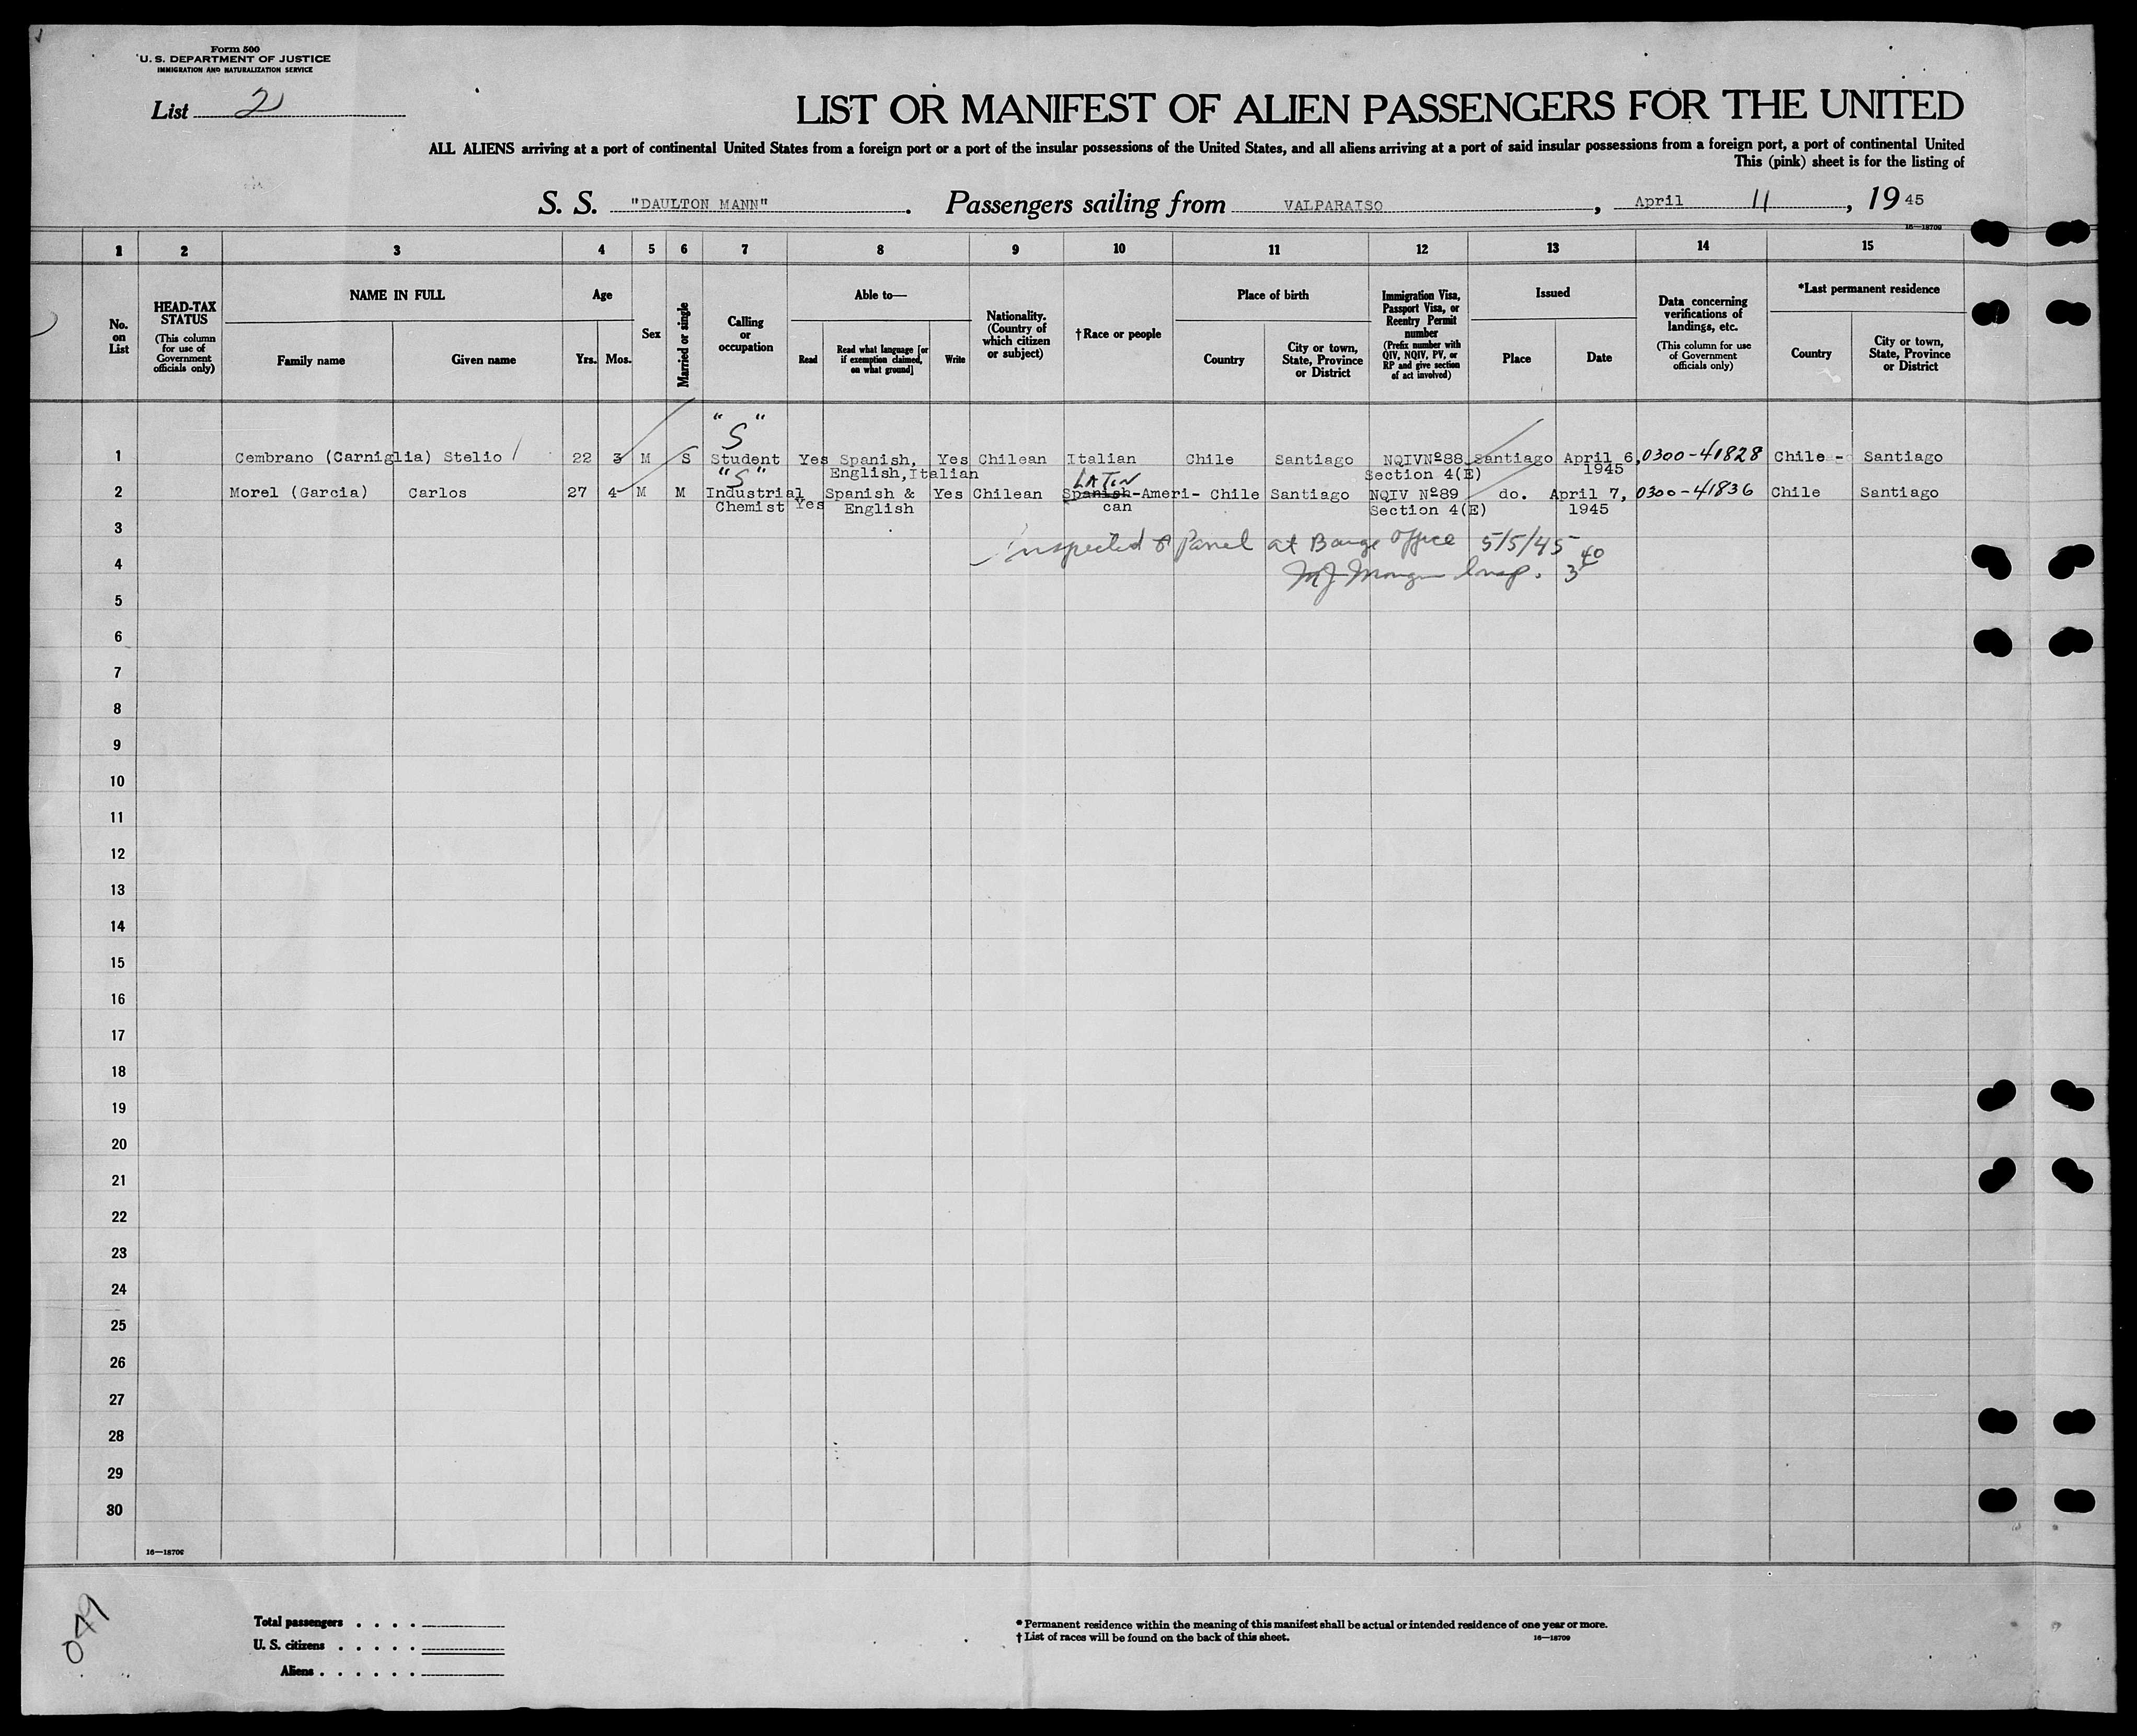 Form 500
U. S. DEPARTMENT OF JUSTICE
IMMIGRATION AND NATURALIZATION SERVICE
List 2
LIST OR MANIFEST OF ALIEN PASSENGERS FOR THE UNITED
ALL ALIENS arriving at a port of continental United States from a foreign port or a port of the insular possessions of the United States, and all aliens arriving at a port of said insular possessions from a foreign port, a port of continental United
This (pink) sheet is for the listing of
S. S. "DAULTON MANN". Passengers sailing from VALPARAISO, April 11, 19 45
16—18709
1 2 3 4 5 6 7 8 9 10 11 12 13 14 15
No. on List
HEAD-TAX STATUS
(This column for use of Government officials only)
NAME IN FULL
Family name
Given name
Age
Yrs. Mos.
Sex
Married or single
Calling or occupation
Able to—
Read
Read what language [or if exemption claimed, on what ground]
Write
Nationality. (Country of which citizen or subject)
†Race or people
Place of birth
Country
City or town, State, Province or District
Immigration Visa, Passport Visa, or Reentry Permit number
(Prefix number with QIV, NQIV, PV, or RP and give section of act involved)
Issued
Place
Date
Data concerning verifications of landings, etc.
(This column for use of Government officials only)
*Last permanent residence
Country
City or town, State, Province or District
"S"
1 Cembrano (Carniglia) Stelio 22 3 M S Student Yes Spanish, Yes Chilean Italian Chile Santiago NQIVNº88 Santiago April 6, 0300-41828 Chile - Santiago
"S" English,Italian LATIN Section 4(E) 1945
2 Morel (Garcia) Carlos 27 4 M M Industrial Spanish & Yes Chilean Spanish-Ameri- Chile Santiago NQIV Nº89 do. April 7, 0300-41836 Chile Santiago
Chemist Yes English can Section 4(E) 1945
3
Inspected & Panel at Barge Office 5/5/45
4
Insp. 3 40
5
6
7
8
9
10
11
12
13
14
15
16
17
18
19
20
21
22
23
24
25
26
27
28
29
30
16—18709
049
Total passengers . . . .
U. S. citizens . . . . .
Aliens . . . . . .
* Permanent residence within the meaning of this manifest shall be actual or intended residence of one year or more.
† List of races will be found on the back of this sheet. 16—18709